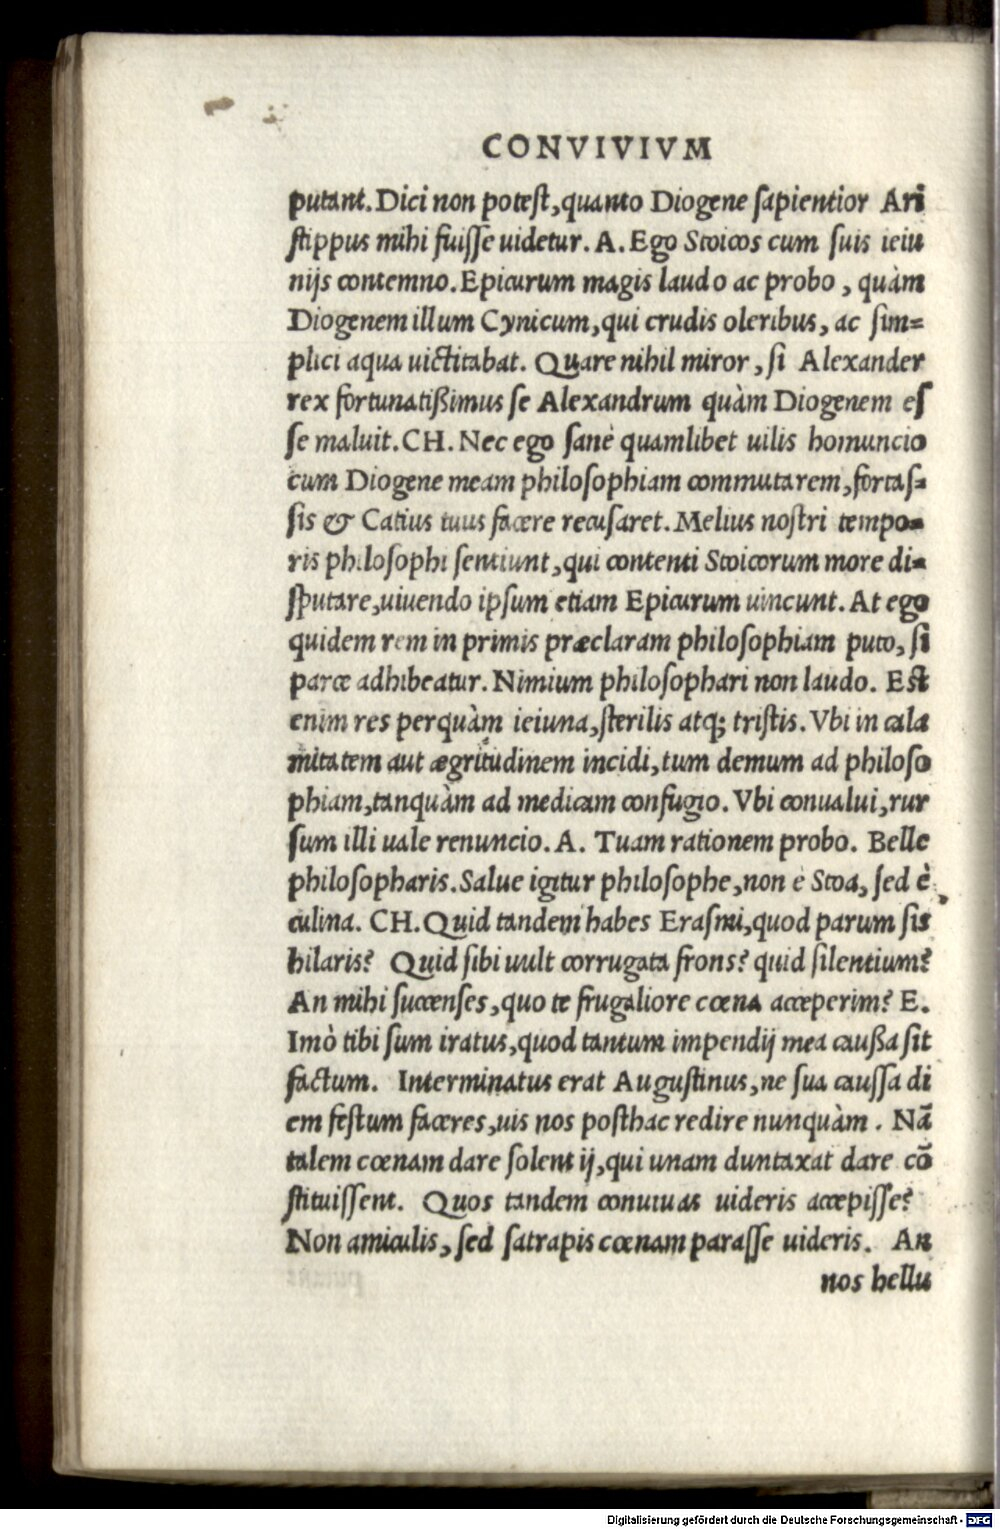 CONVIVIVM
putant. Dici non potest, quanto Diogene sapientior Ari
stippus mihi fuisse uidetur. A. Ego Stoicos cum suis ieiu
nijs contemno. Epicurum magis laudo ac probo, quàm
Diogenem illum Cynicum, qui crudis oleribus, ac sim=
plici aqua uictitabat. Quare nihil miror, si Alexander
rex fortunatißimus se Alexandrum quàm Diogenem es
se maluit. CH. Nec ego sanè quamlibet uilis homuncio
cum Diogene meam philosophiam commutarem, fortas=
sis & Catius tuus facere recusaret. Melius nostri tempo=
ris philosophi sentiunt, qui contenti Stoicorum more di=
sputare, uiuendo ipsum etiam Epicurum uincunt. At ego
quidem rem in primis præclaram philosophiam puto, si
parce adhibeatur. Nimium philosophari non laudo. Est
enim res perquàm ieiuna, sterilis atq; tristis. Vbi in cala
mitatem aut ægritudinem incidi, tum demum ad philoso
phiam, tanquàm ad medicam confugio. Vbi conualui, rur
sum illi uale renuncio. A. Tuam rationem probo. Belle
philosopharis. Salue igitur philosophe, non è Stoa, sed è
culina. CH. Quid tandem habes Erasmi, quod parum sis
hilaris? Quid sibi uult corrugata frons? quid silentium?
An mihi succenses, quo te frugaliore cœna acceperim? E.
Imò tibi sum iratus, quod tantum impendij mea caußa sit
factum. Interminatus erat Augustinus, ne sua caussa di
em festum faceres, uis nos posthac redire nunquàm. Nā
talem cœnam dare solent ij, qui unam duntaxat dare cō
stituissent. Quos tandem conuiuas uideris accepisse?
Non amiculis, sed satrapis cœnam parasse uideris. An
nos hellu
Digitalisierung gefördert durch die Deutsche Forschungsgemeinschaft - DFG